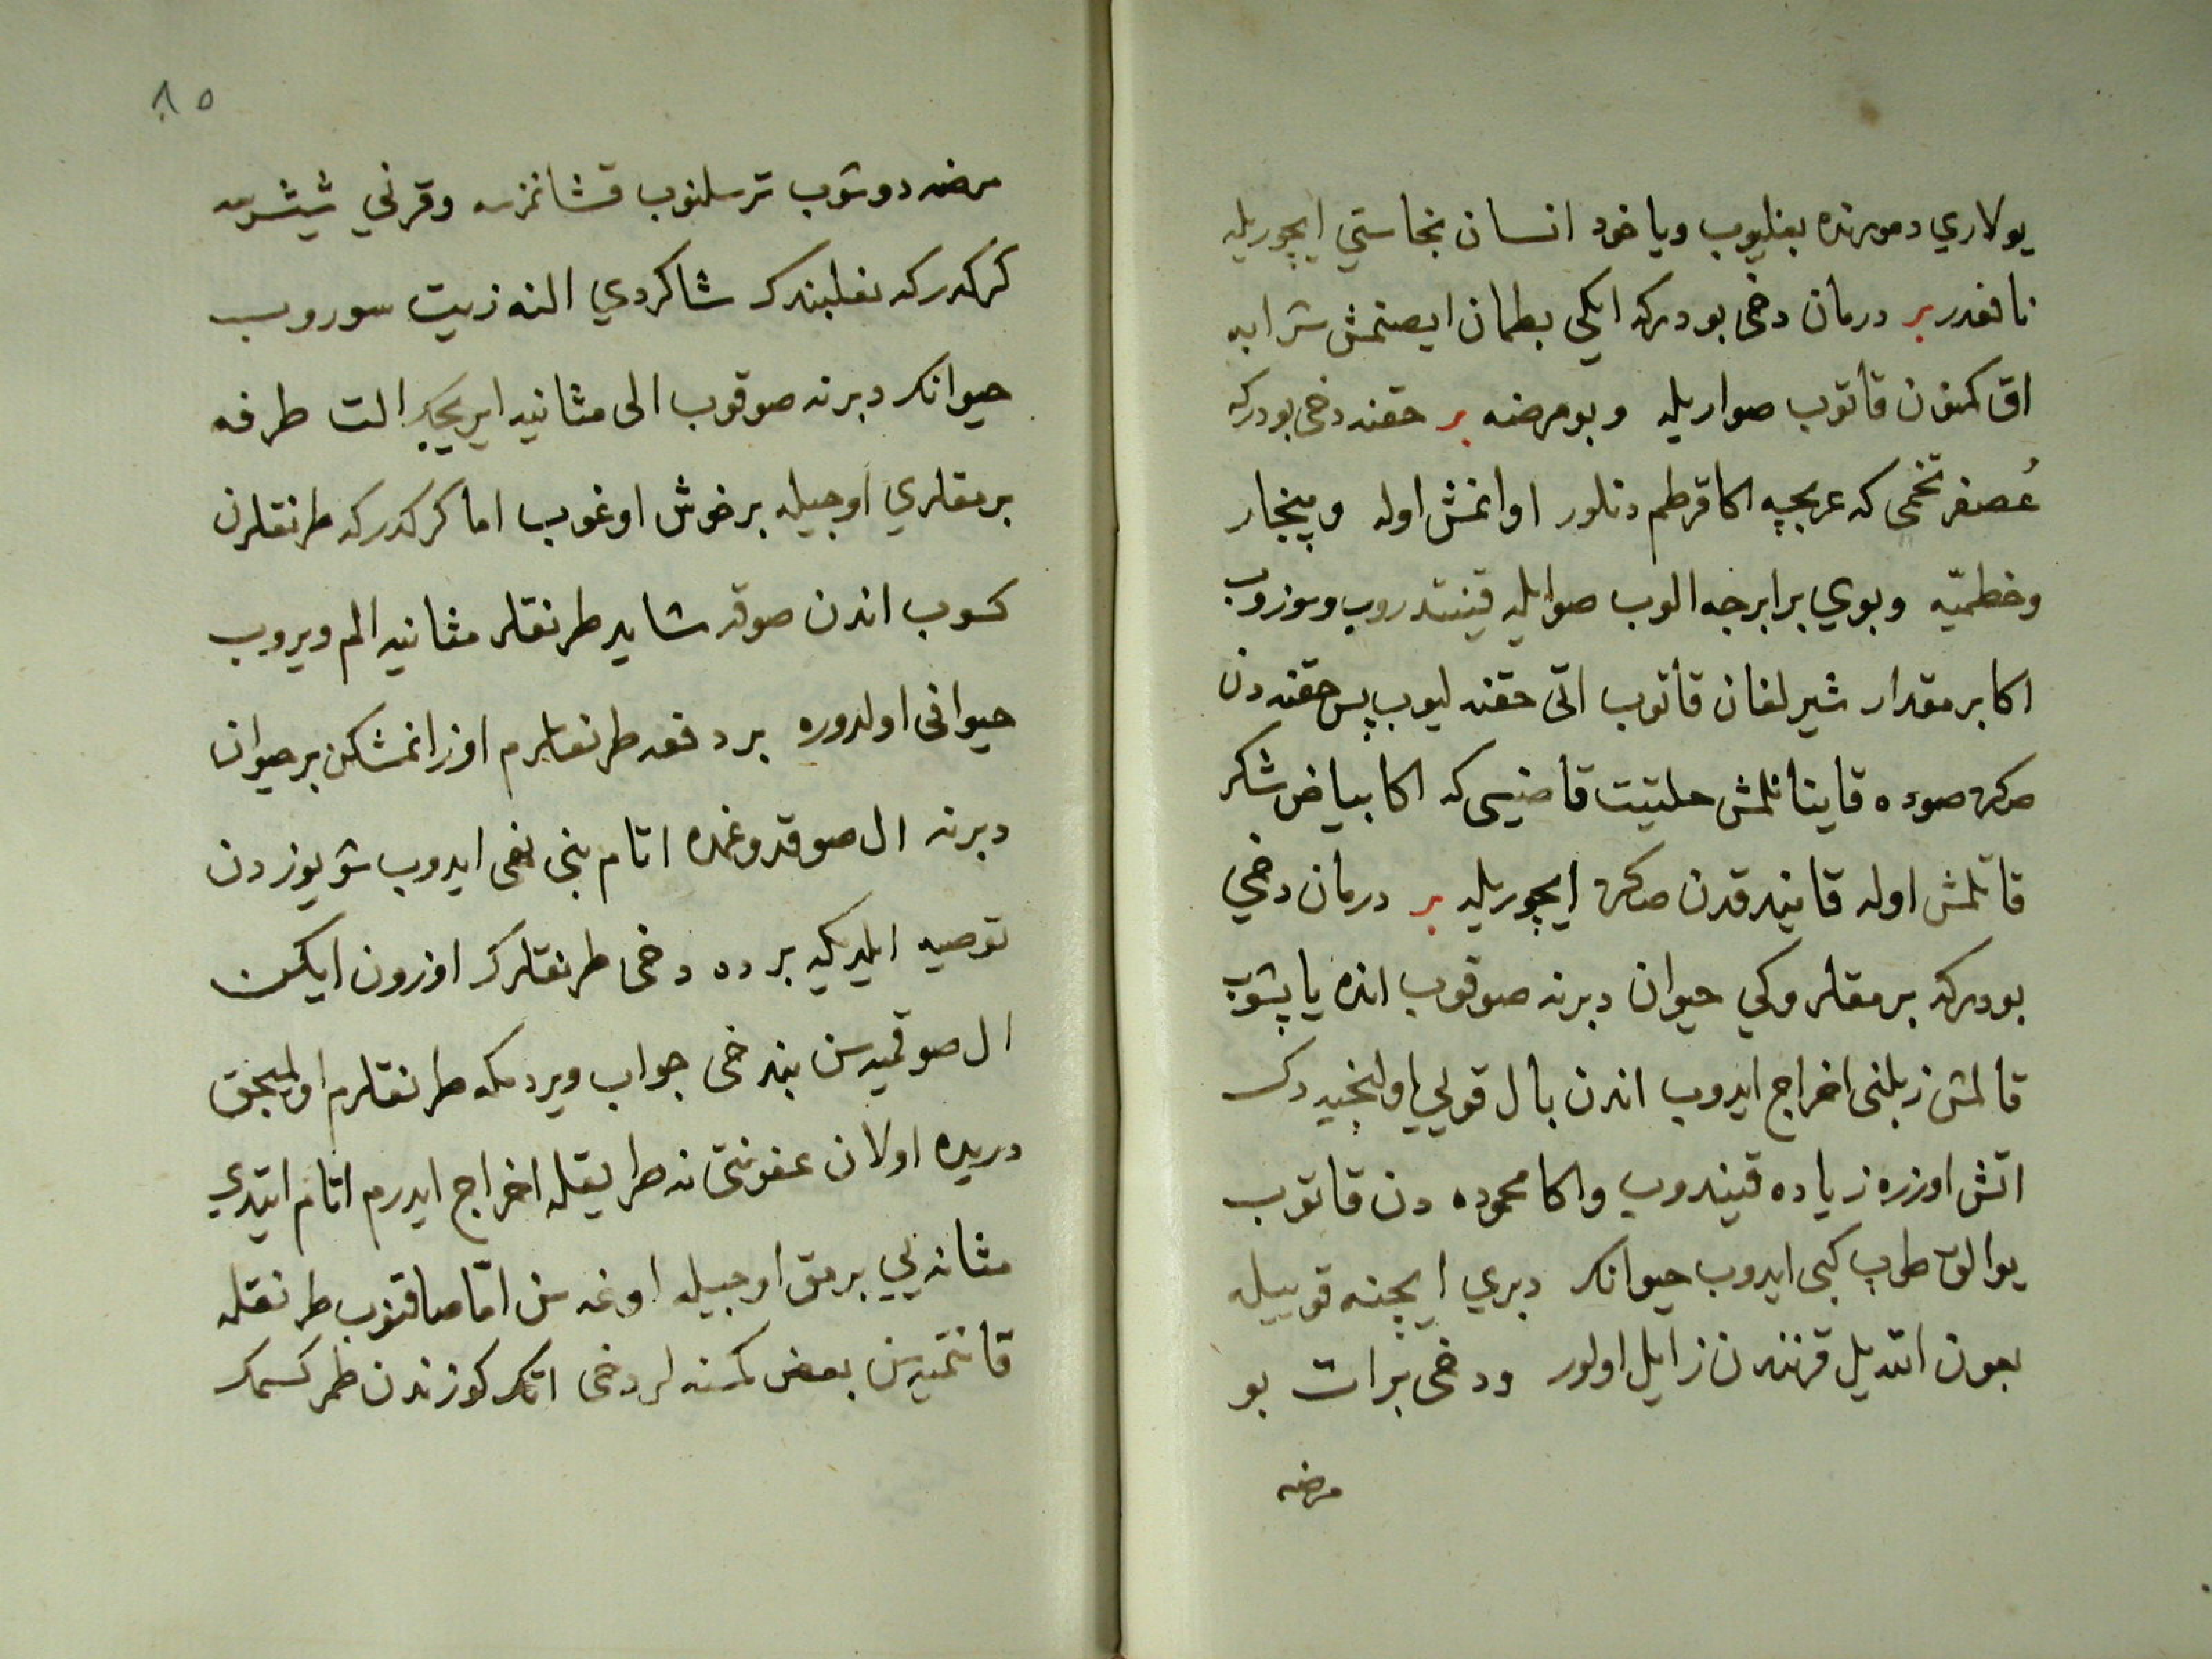 يولاري دموزنده بغليوب وياخود انسان نجاستي ايچوريله
نافعدر بر درمان دخى بودركه ايكي بطمان ايصنمش شرابه
اق كمنون قاتوب صواريله وبومرضه بر حقنه دخى بودركه
عُصفر تخمى كه عربجه اكا قرطم دنلور اوانمش اوله وپنجار
وخطميّه وبوي برابرجه الوب صوايله قينتدروب وسوزوب
اكا برمقدار شيرلغان قاتوب اتى حقنه ليوب پس حقنه دن
صكره صوده قاينانلمش حلتيت قاضيسى كه اكا بياض شكر
قاتلمش اوله قانيدقدن صكره ايچوريله بر درمان دخي
بودركه برمقلروكي حيوان دبرنه صوقوب انده ياپشوب
قالمش زبلنى اخراج ايدوب اندن بال قوليي اولنجيه دك
اتش اوزره زياده قيندروب واكا محموده دن قاتوب
يوالق طوب كبى ايدوب حيوانك دبري ايچنه قوييله
بعون اتديل قرنندن زايل اولور ودخى برات بو
مرضه
٨٥
مرضه دوشوب ترسلنوب قشانمزسه وقرني شيشرسه
كركدركه نعلبندك شاكردي النه زيت سوروب
حيوانك دبرنه صوقوب الى مثانيه ايريجك الت طرفه
برمقلري اوجيله برخوش اوغوب اما كركدركه طرنقلرن
كسوب اندن صوقه شايد طرنقلر مثانيه الم ويروب
حيوانى اولدوره بر دفعه طرنقلرم اوزانمشكن برحيوان
دبرنه ال صوقدوغمده اتام بنى نهى ايدوب شو يوزدن
توصيه ايلديكه بر ده دخى طرنقلرك اوزون ايكن
ال صوقميه سن بندخى جواب ويردمكه طرنقلرم اولميجق
دريده اولان عفونتى نه طريقله اخراج ايدرم اتام ايتدي
مثانه يي برمق اوجيله اوغه سن امّا صاقنوب طرنقله
قانتميه سن بعض كمسنه لر دخى اتك كوزندن طمر كسمك